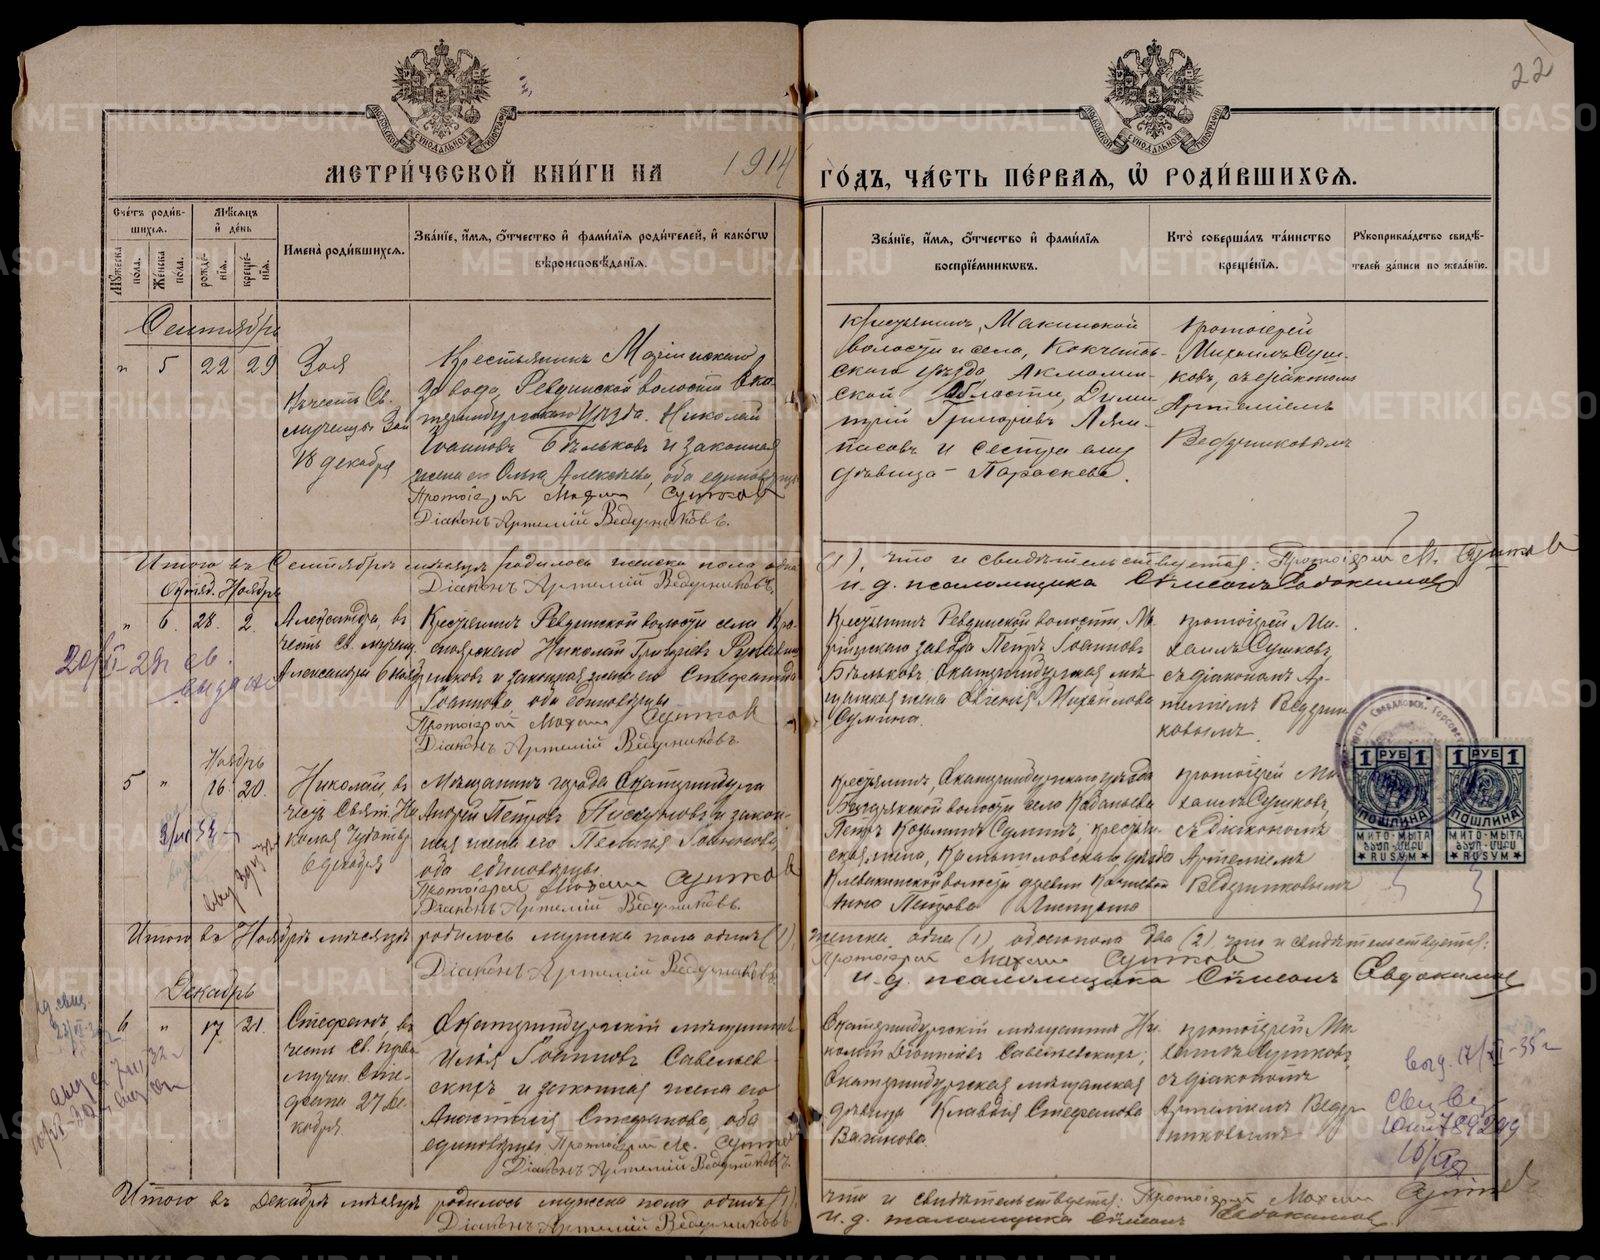 22
МЕТРИ́ЧЕСКОЙ КНИ́ГИ НА 1914 ГО́ДЪ, ЧА́СТЬ ПЕ́РВАѦ, Ѿ РОДИ́ВШИХСѦ.
Сче́тъ роди́вшихсѧ.
Мꙋ́жеска пола.
Же́нска пола.
Мѣ́сѧцъ и҆ де́нь
рожде́нїѧ.
креще́нїѧ.
Имена̀ роди́вшихсѧ.
Зва́нїе, и҆́мѧ, ѻ҆́тчество и҆ фами́лїѧ роди́телей, и҆ како́гѡ
вѣроисповѣ́данїѧ.
Зва́нїе, и҆́мѧ, ѻ҆́тчество и҆ фами́лїѧ
воспрїе́мникѡвъ.
Кто̀ соверша́лъ та́инство
креще́нїѧ.
Рꙋкоприкла́дство свидѣ́-
телей за́писи по жела́нїю.
Сентябрь
" 5 22 29
Зоя
въ честь Св.
мученицы Зои
18 декабря
Крестьянинъ Маріинскаго
завода, Ревдинской волости Ека-
теринбургскаго уѣзда. Николай
Іоанновъ Бѣльковъ и законная
жена его Ольга Алексѣева, оба единовѣрцы
Протоіерей Михаилъ Сушковъ
Діаконъ Артемій Ведерниковъ.
Крестьянинъ, Макинской
волости и села, Кокчетав-
скаго уѣзда Акмолин-
ской области, Дими-
трій Григоріевъ Аляи-
пасовъ и сестра ему
дѣвица Параскева.
Протоіерей
Михаилъ Суш-
ковъ, съ діакономъ
Артеміемъ
Ведерниковымъ
Итого въ Сентябрѣ мѣсяцѣ родилось женска пола одна (1), что и свидѣтельствуетъ: Протоіерей М. Сушковъ
Діаконъ Артемій Ведерниковъ.
и. д. псаломщика Сѵмеонъ Евдокимовъ
Октяб. Ноябрь
" 6. 28. 2.
Александра, въ
честь Св. мучениц.
Александры 6 ноября
Крестьянинъ Ревдинской волости села Кра-
сноярскаго Николай Григоріевъ
и законная жена его Стефанида
Іоаннова, оба единовѣрцы
Протоіерей Михаилъ Сушковъ
Діаконъ Артемій Ведерниковъ.
Крестьянинъ Ревдинской волости, Ма-
ріинскаго завода Петръ Іоанновъ
Бѣльковъ, Екатеринбургская мѣ-
щанская жена Евгенія Михайлова
Сумина.
протоіерей Ми-
хаилъ Сушковъ,
съ діакономъ Ар-
теміемъ Ведерни-
ковымъ.
Ноябрь
5 " 16 20.
Николай, въ
честь Святит. Ни-
колая Чудотвор.
6 декабря
Мѣщанинъ города Екатеринбурга
Андрей Петровъ Пискуновъ и закон-
ная жена его Пелагія Іоаннова,
оба единовѣрцы
Протоіерей Михаилъ Сушковъ
Діаконъ Артемій Ведерниковъ.
крестьянинъ, Екатеринбургскаго уѣзда
волости село
Петръ Козьминъ Суминъ, крестьян-
ская жена, Красноуфимскаго уѣзда
Клевакинской волости
Анна Петрова
протоіерей Ми-
хаилъ Сушковъ,
съ Діакономъ
Артеміемъ
Ведерниковымъ
1 РУБ 1
ПОШЛИНА
МИТО-МЫТА
RUSYM
1 РУБ 1
ПОШЛИНА
МИТО-МЫТА
RUSYM
Итого въ Ноябрѣ мѣсяцѣ родилось мужска пола одинъ (1), женска одна (1), обоего пола два (2) что и свидѣтельствуетъ:
Протоіерей Михаилъ Сушковъ
Діаконъ Артемій Ведерниковъ.
и. д. псаломщика Сѵмеонъ Евдокимовъ
Декабрь
6 " 17. 21.
Стефанъ, въ
честь Св. перво-
мучен. Сте-
фана 27 де-
кабря
Екатеринбургскій мѣщанинъ
Илья Іоанновъ Савельев-
скихъ и законная жена его
Анастасія Стефанова, оба
единовѣрцы Протоіерей М. Сушковъ
Діаконъ Артемій Ведерниковъ.
Екатеринбургскій мѣщанинъ Ни-
колай Савельевскихъ;
Екатеринбургская мѣщанская
дѣвица Клавдія Стефанова
Вахикова.
протоіерей Ми-
хаилъ Сушковъ,
съ діакономъ
Артеміемъ Ведер-
никовымъ
Итого въ Декабрѣ мѣсяцѣ родилось мужска пола одинъ (1), что и свидѣтельствуетъ: Протоіерей Михаилъ Сушковъ
Діаконъ Артемій Ведерниковъ.
и. д. псаломщика Сѵмеонъ Евдокимовъ
METRIKI.GASO-URAL.RU